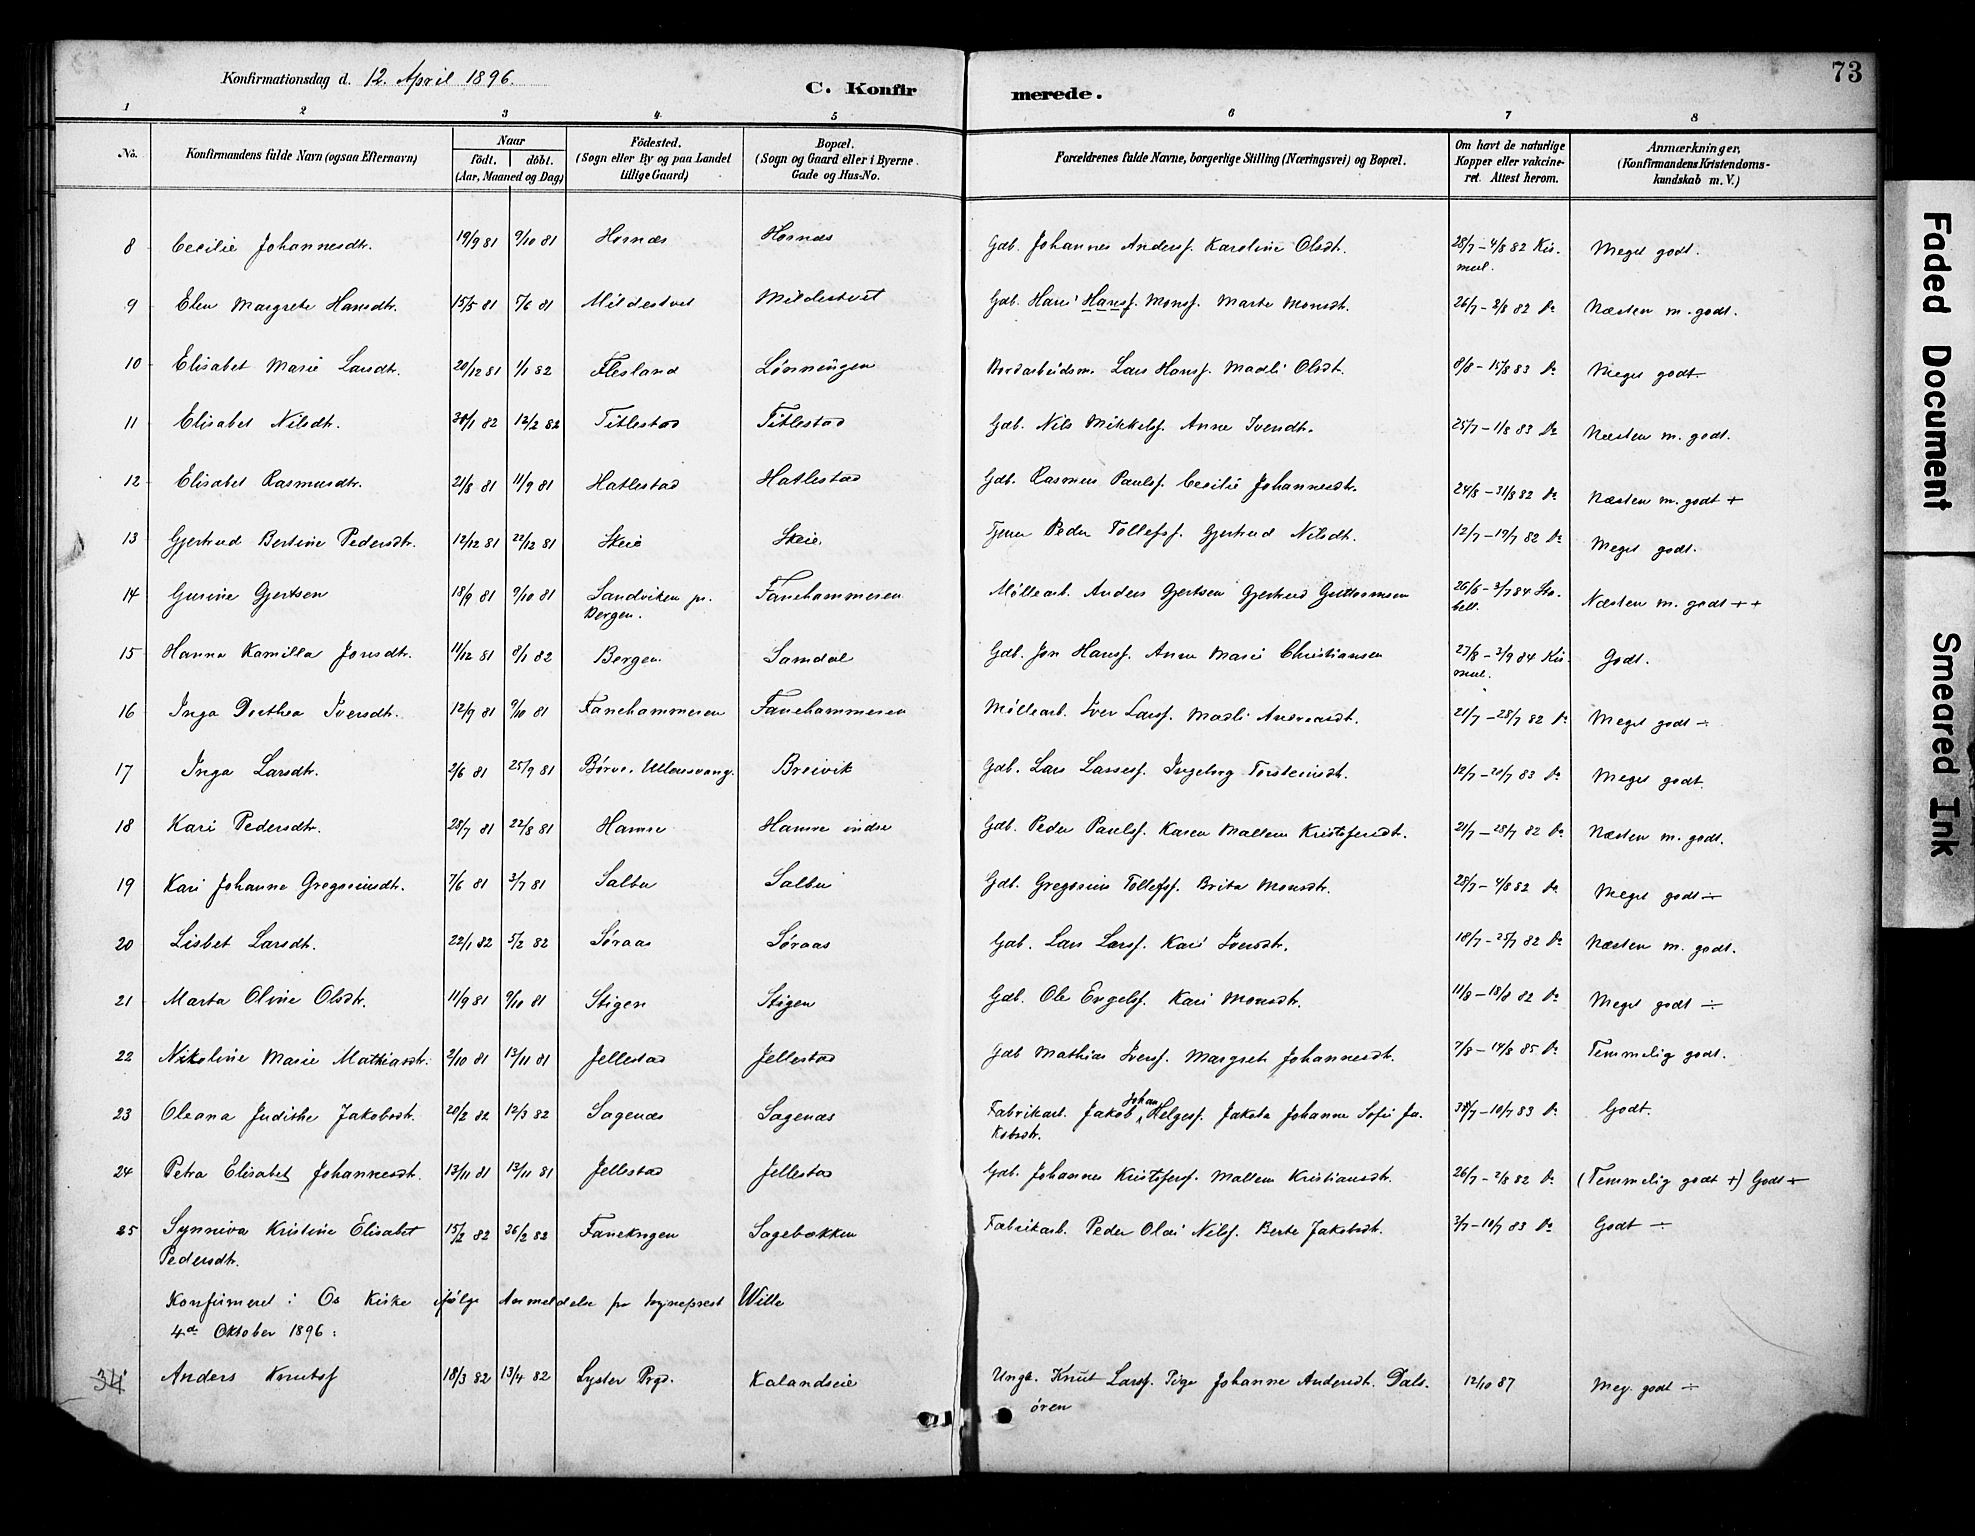 73
Konfirmationsdag d. 12. April 1896.
C. Konfirmerede.
1 2 3 4 5 6 7 8
No.
Konfirmandens fulde Navn (ogsaa Efternavn)
Naar
födt. döbt.
(Aar, Maaned og Dag)
Födested.
(Sogn eller By og paa Landet
tillige Gaard)
Bopæl.
(Sogn og Gaard eller i Byerne
Gade og Hus-No.
Forældrenes fulde Navne, borgerlige Stilling (Næringsvei) og Bopæl.
Om havt de naturlige
Kopper eller vakcine-
ret. Attest herom.
Anmærkninger,
(Konfirmandens Kristendoms-
kundskab m. V.)
8 Cecilie Johannesdtr. 19/9 81 9/10 81 Hornæs Hornæs Gdb. Johannes Anderss. Karoline Olsdt. 28/7 – 4/8 82 Kis- Meget godt.
mul.
9 Elen Margrete Hansdtr. 15/5 81 5/6 81 Mildestvet Mildestvet Gdb. Hans Hanss. Monss. Marta Monsdt. 26/7 – 2/8 82 Do Næsten m. godt.
10 Elisabet Marie Larsdtr. 20/12 81 1/1 82 Flesland Lönningen Lars Hanss. Madli Olsdt. 8/8 – 15/8 83 Do Meget godt.
11 Elisabet Nilsdt. 12/2 82 Titlestad Titlestad Gdb. Nils Mikkels. Anna Iversdt. 25/7 – 1/8 83 Do Næsten m. godt.
12 Elisabet Rasmusdtr. 21/8 81 11/9 81 Hatlestad Hatlestad Gdb. Rasmus Pauls. Cecilie Johannesdt. 24/8 – 31/8 82 Do Næsten m. godt +
13 Gjertrud Bertine Pedersdtr. 12/12 81 22/12 81 Skeie Skeie. Tjener Peder Tollefs. Gjertrud Nilsdt. 12/7 – 19/7 82 Do Meget godt.
14 Gurine Gjertsen 18/9 81 9/10 81 Sandviken pr. Fanehammeren Möllearb. Anders Gjertsen Gjertrud Guttormsen 26/6 – 3/7 84 Næsten m. godt + +
Bergen.
15 Hanna Kamilla Jonsdtr. 11/12 81 8/1 82 Bergen Samdal Gdb. Jon Hanss. Anna Marie Christiansen 27/8 – 3/9 84 Kis- Godt.
mul.
16 Inga Dorthea Iversdt. 12/9 81 9/10 81 Fanehammeren Fanehammeren Möllearb. Iver Larss. Madli Andreasdt. 21/7 – 28/7 82 Do Meget godt ÷
17 Inga Larsdtr. 2/6 81 25/9 81 Börve, Ullensvang. Breivik Gdb. Lars Lasses. Ingeborg Torsteinsdt. 12/7 – 20/7 83 Do Meget godt.
18 Kari Pedersdtr. 28/7 81 22/8 81 Hamre Hamre indre Gdb. Peder Pauls. Karen Mallena Kristofersdt. 21/7 – 28/7 82 Do Næsten m. godt.
19 Kari Johanna Gregoriusdtr. 7/6 81 3/7 81 Salbu Salbu Gdb. Gregorius Tollefs. Brita Monsdtr. 28/7 – 4/8 82 Do Meget godt ÷
20 Lisbet Larsdt. 22/1 82 5/2 82 Söraas Söraas Gdb. Lars Larss. Kari Iversdtr. 18/7 – 25/7 82 Do Næsten m. godt.
21 Marta Oline Olsdtr. 11/9 81 9/10 81 Stigen Stigen Gdb. Ole Engels. Kari Monsdtr. 11/8 – 18/8 82 Do Meget godt ÷
22 Nikoline Marie Mathiasdtr. 2/10 81 13/11 81 Jellestad Jellestad Gdb Mathias Ivers. Margreta Johannesdt. 7/8 – 14/8 85 Do Temmelig godt.
23 Oleana Judithe Jakobsdt. 20/2 82 12/3 82 Sagenæs Sagenæs Fabrikarb. Jakob Johan Helges. Jakobia Johanna Sofie Ja- Godt.
kobsdtr.
24 Petra Elisabet Johannesdt. 13/11 81 13/11 81 Jellestad Jellestad Gdb. Johannes Kristofers. Mallena Kristiansdt. 26/7 – 2/8 82 Do (Temmelig godt +) Godt ÷
25 Synniva Kristine Elisabet 15/2 82 26/2 82 Fanekrogen Sagebækken Fabrikarb. Peder Olai Nils. Berta Jakobsdt. 3/7 – 10/7 83 Do Godt ÷
Pedersdtr.
Konfirmeret i Os Kirke ifölge Anmeldelse fra Sogneprest Wille
4de Oktober 1896:
Anders Knuts 18/3 82 13/4 82 Lyster Prgd. Kalandseie Ungk. Knut Larss. Pige Johanna Andersdt. Dals- 12/10 87 Meg. godt ÷
ören
Faded Document
Smeared Ink